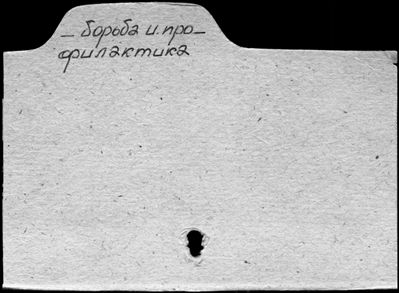 – борьба и про–
филактика